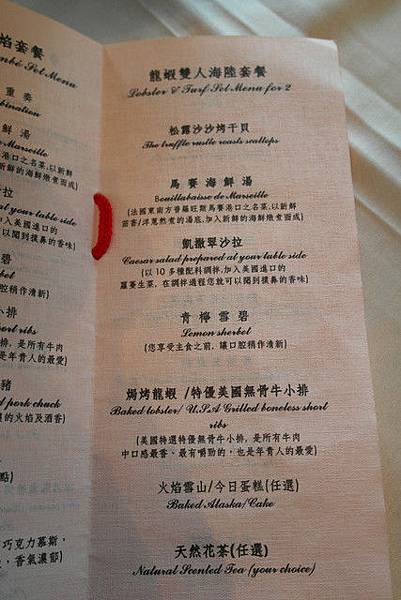 焰套餐
Set Menu
重奏
鮮湯
Marseille
港口之名菜,以新鮮
的海鮮燉煮而成)
沙拉
at your table side
碧
sherbet
口腔稍作清新)
小排
short ribs
小排, 是所有牛肉
是年青人的最愛)
豬
pork chuck
的火焰及酒香)
點)
巧克力慕斯,
, 香氣濃郁)
龍蝦雙人海陸套餐
Lobster & Turf Set Menu for 2
松露沙沙烤干貝
The truffle rustle roasts scallops
馬賽海鮮湯
Bouillabaisse de Marseille
(法國東南方普羅旺斯馬賽港口之名菜,以新鮮
茴香/洋蔥熬煮的湯底,加入新鮮的海鮮燉煮而成)
凱撒翠沙拉
Caesar salad prepared at your table side
(以 10 多種配料調拌,加入美國進口的
蘿蔓生菜, 在調拌過程您就可以聞到撲鼻的香味)
青檸雪碧
Lemon sherbet
(您享受主食之前, 讓口腔稍作清新)
焗烤龍蝦 /特優美國無骨牛小排
Baked lobster/ U.S.A Grilled boneless short
ribs
(美國特選特優無骨牛小排, 是所有牛肉
中口感最香、最有嚼勁的, 也是年青人的最愛)
火焰雪山/今日蛋糕(任選)
Baked Alaska/Cake
天然花茶(任選)
Natural Scented Tea (your choice)